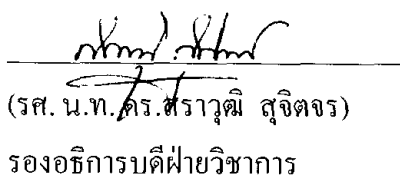 (รศ. น.ท. ดร.สราวุฒิ สุจิตจร)
รองอธิการบดีฝ่ายวิชาการ